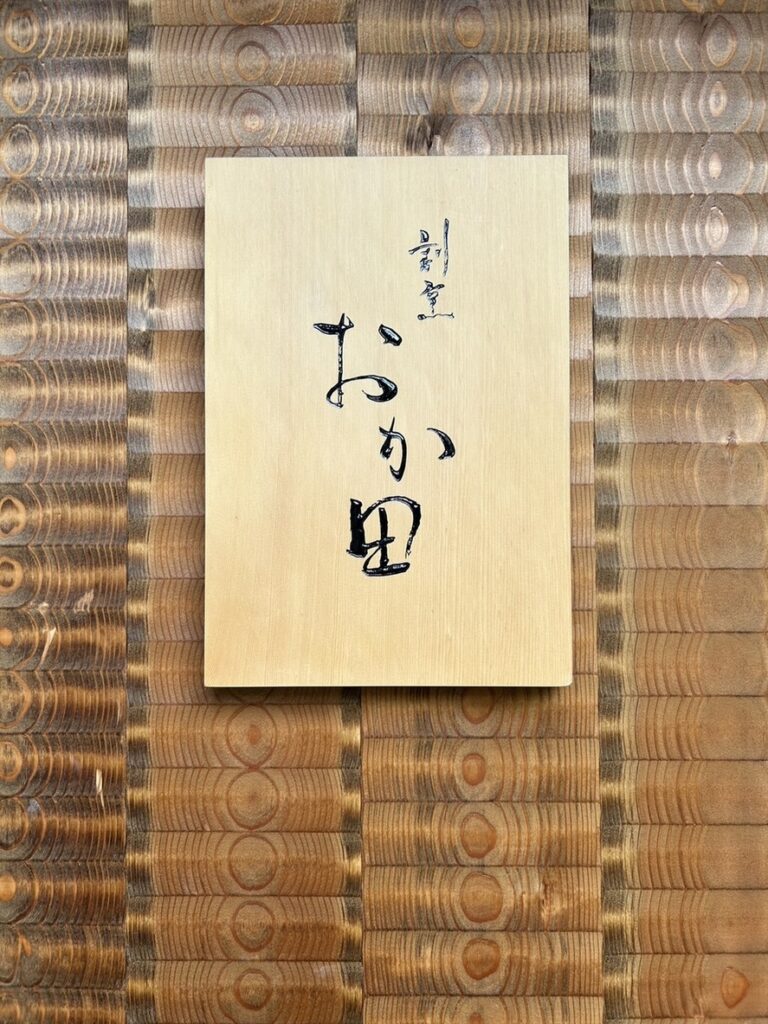 割烹
おか田